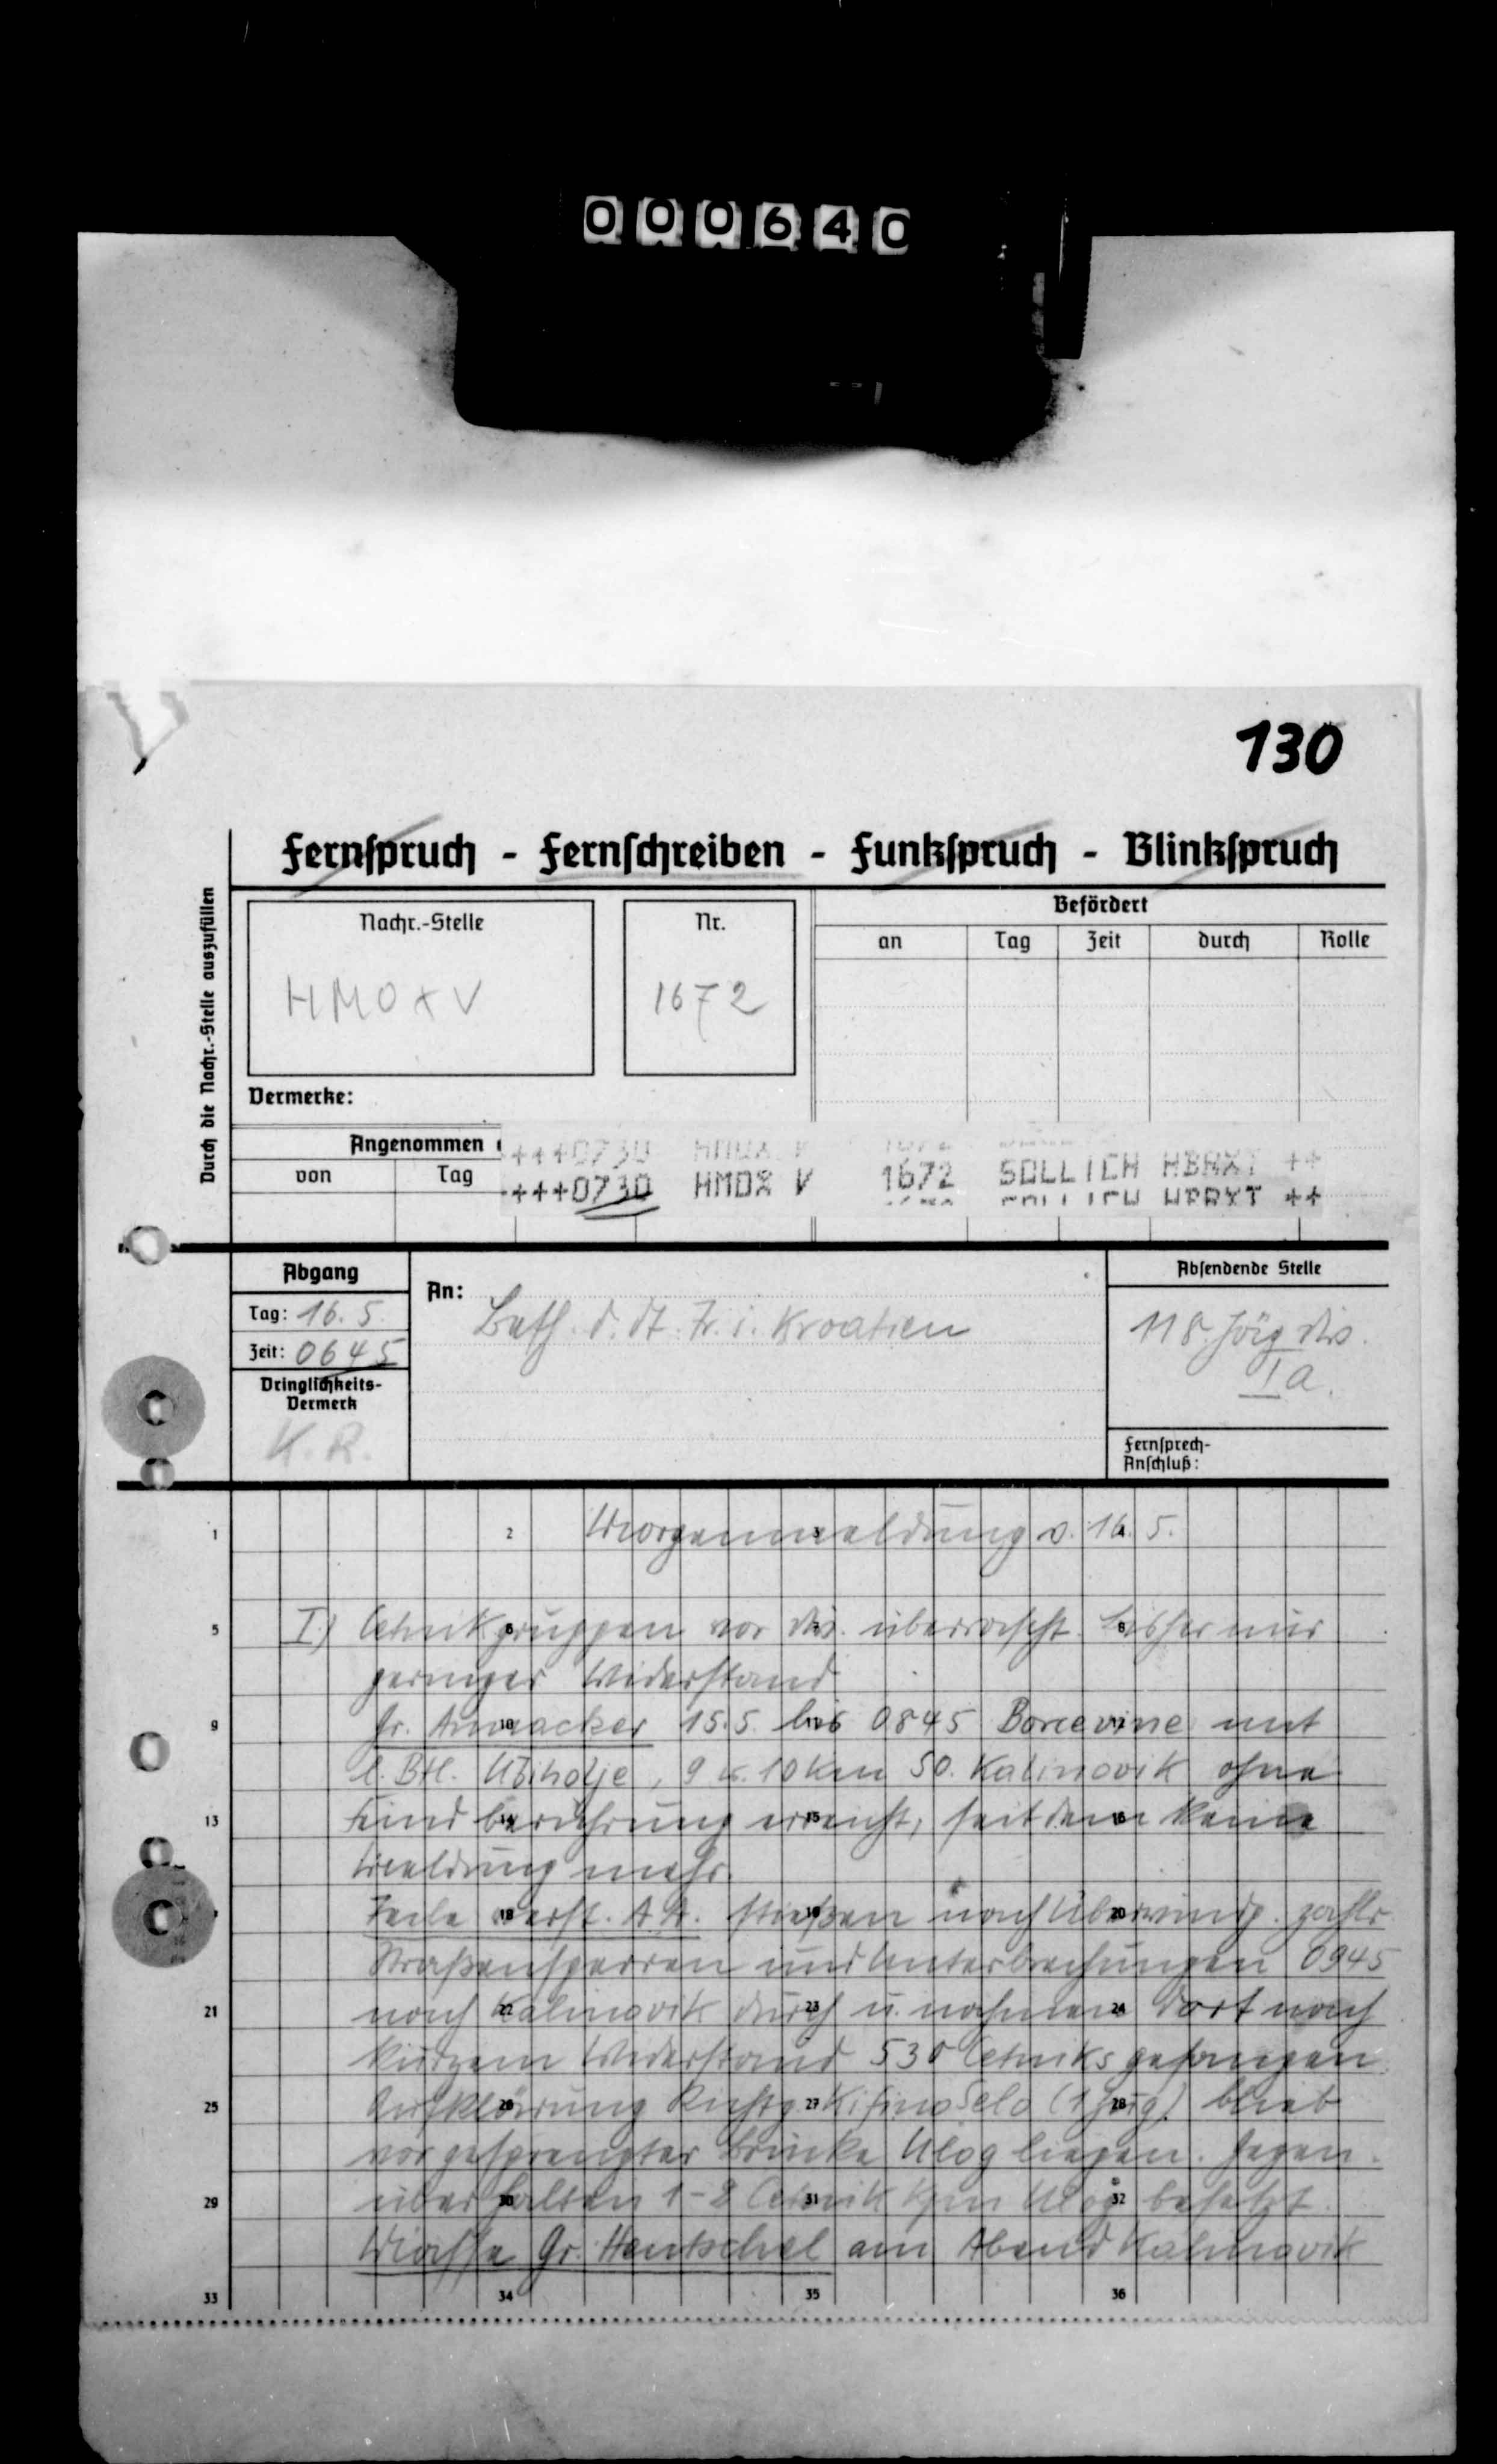 000640
130
Fernspruch - Fernschreiben - Funkspruch - Blinkspruch
Durch die Nachr.-Stelle auszufüllen
Nachr.-Stelle
HMOXV
Nr.
1672
Befördert
an Tag Zeit durch Rolle
Vermerke:
Angenommen
von Tag
+++0730 HMOX V 1672 SOLLICH HBRXT ++
Abgang
Tag: 16.5.
Zeit: 0645
Dringlichkeits-
Vermerk
K.R.
An:
Befh. d. dt. Tr. i. Kroatien
Absendende Stelle
118. Jäg. Div.
Ia.
Fernsprech-
Anschluß:
Morgenmeldung v. 16. 5.
I.) Cetnikgruppen vor Div. überrascht. Bisher nur
geringer Widerstand
Gr. Annacker 15.5. bis 0845 Borcevine mit
l. Btl. 9 u. 10 km SO. Kalinovik ohne
Feindberührung erreicht, seitdem keine
Meldung mehr.
Teile verst. A.A. stießen nach Überwindg. zahlr.
Straßensperren und Unterbrechungen 0945
nach Kalinovik durch u. nahmen dort nach
kurzem Widerstand 530 Cetniks gefangen.
Aufklärung Richtg. Kifino Selo (1 Zug) blieb
vor gesprengter Brücke Ulog liegen. Gegen-
über halten 1-2 Cetnik Kpn Ulog besetzt.
Masse Gr. Hentschel am Abend Kalinovik
1 2 3 4 5 6 8 9 10 13 14 15 16 18 19 20 21 22 23 24 25 26 27 28 29 30 31 32 33 34 35 36